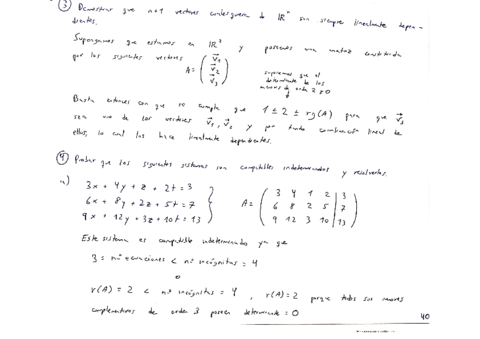 ③ Demostrar que n+1 vectores cualesquiera de ℝⁿ son siempre linealmente depen-
dientes.
Supongamos que estamos en ℝ² y poseemos una matriz constituida
por los siguientes vectores A = (v⃗₁ v⃗₂ v⃗₃) supongamos que el
determinante de los
menores de orden 2 ≠ 0
Basta entonces con que se cumpla que 1 ≤ 2 ≤ rg(A) para que v⃗₃
sea uno de los vectores v⃗₁, v⃗₂ y por tanto combinación lineal de
ellos, lo cual los hace linealmente dependientes.
④ Probar que los siguientes sistemas son compatibles indeterminados y resolverlos.
a) 3x + 4y + z + 2t = 3
6x + 8y + 2z + 5t = 7
9x + 12y + 3z + 10t = 13
A = ( 3 4 1 2 | 3
6 8 2 5 | 7
9 12 3 10 | 13 )
Este sistema es compatible indeterminado ya que
3 = nº ecuaciones < nº incógnitas = 4
o
r(A) = 2 < nº incógnitas = 4, r(A) = 2 porque todos sus menores
complementarios de orden 3 poseen determinante = 0
40